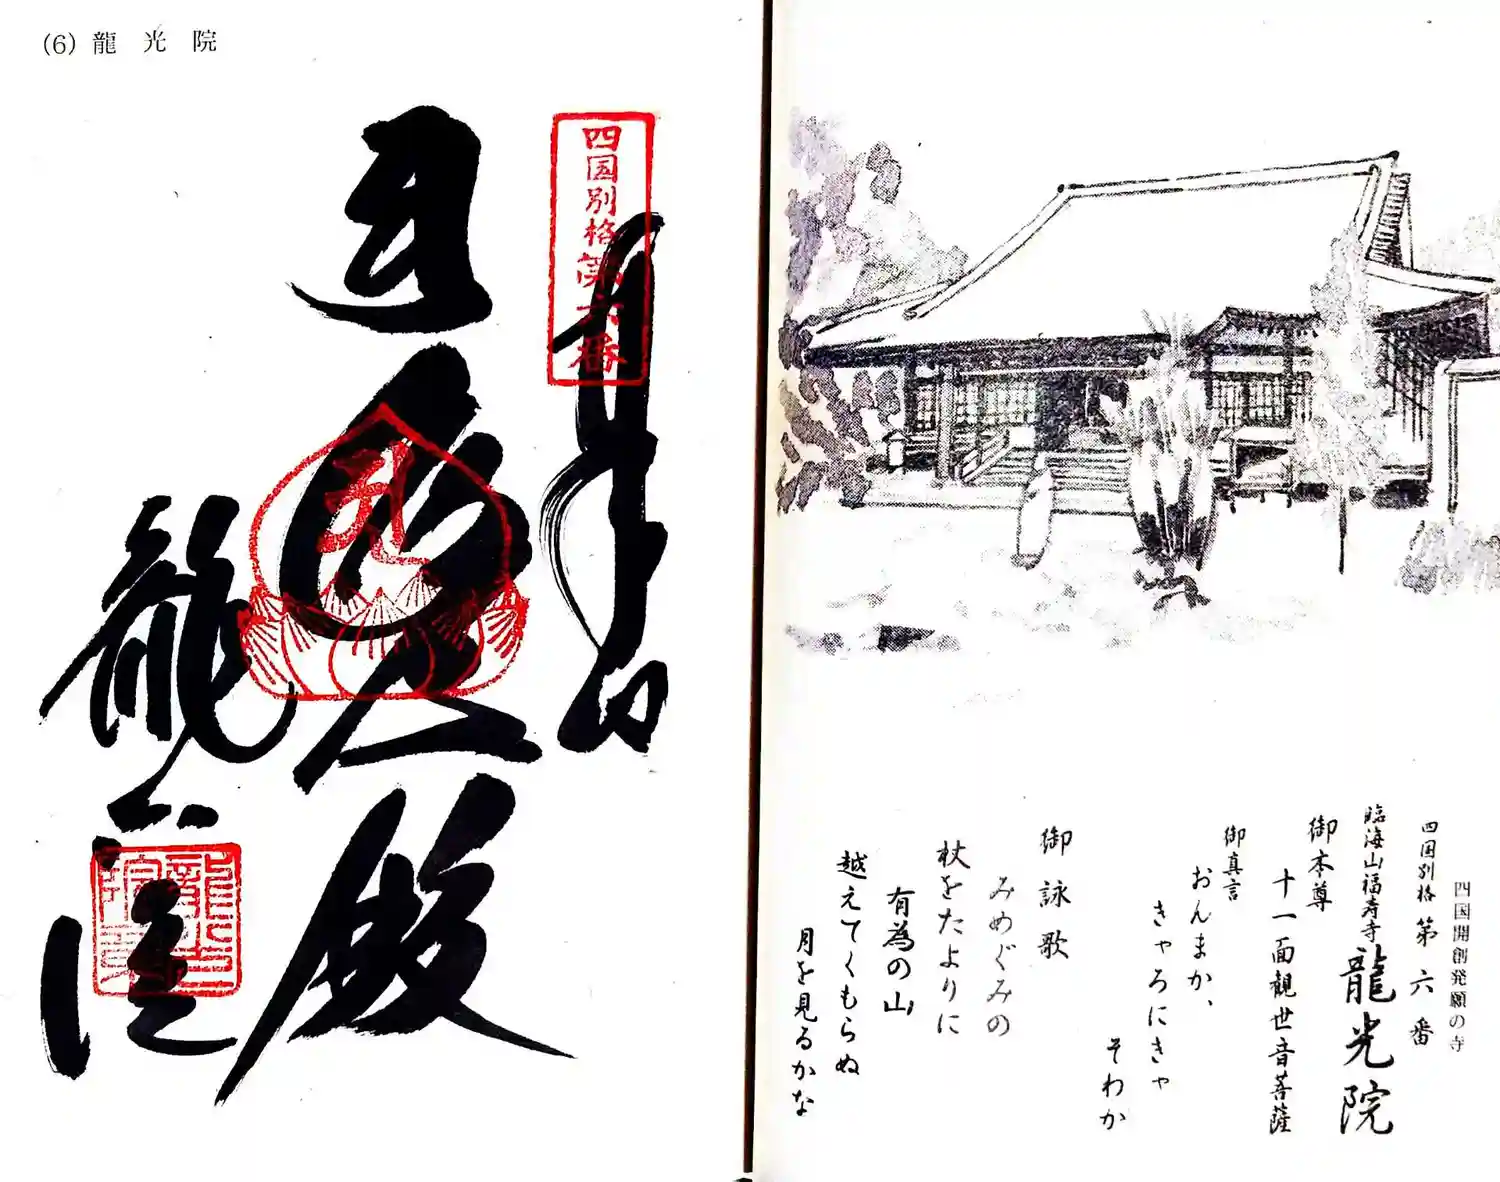 (6) 龍光院
四国別格第六番
奉
大悲殿
龍光院
四国開創発願の寺
四国別格 第六番
臨海山福寿寺 龍光院
御本尊
十一面観世音菩薩
御真言
おんまか、
きゃろにきゃ
そわか
御詠歌
みめぐみの
杖をたよりに
有為の山
越えてくもらぬ
月を見るかな